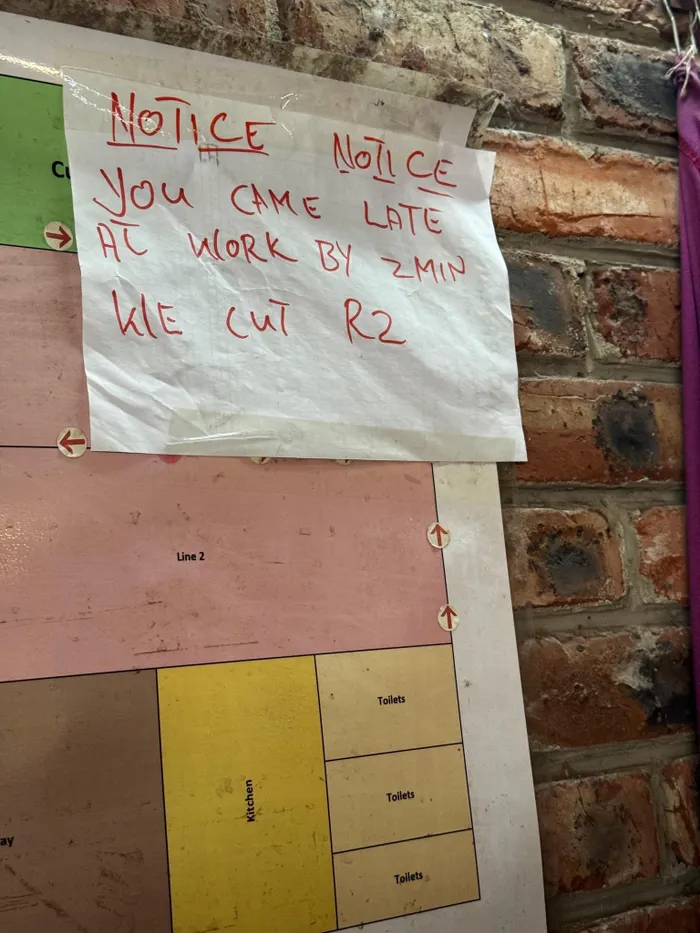 NOTICE NOTICE
YOU CAME LATE
AT WORK BY 2MIN
WE CUT R2
Line 2
Kitchen
Toilets
Toilets
Toilets